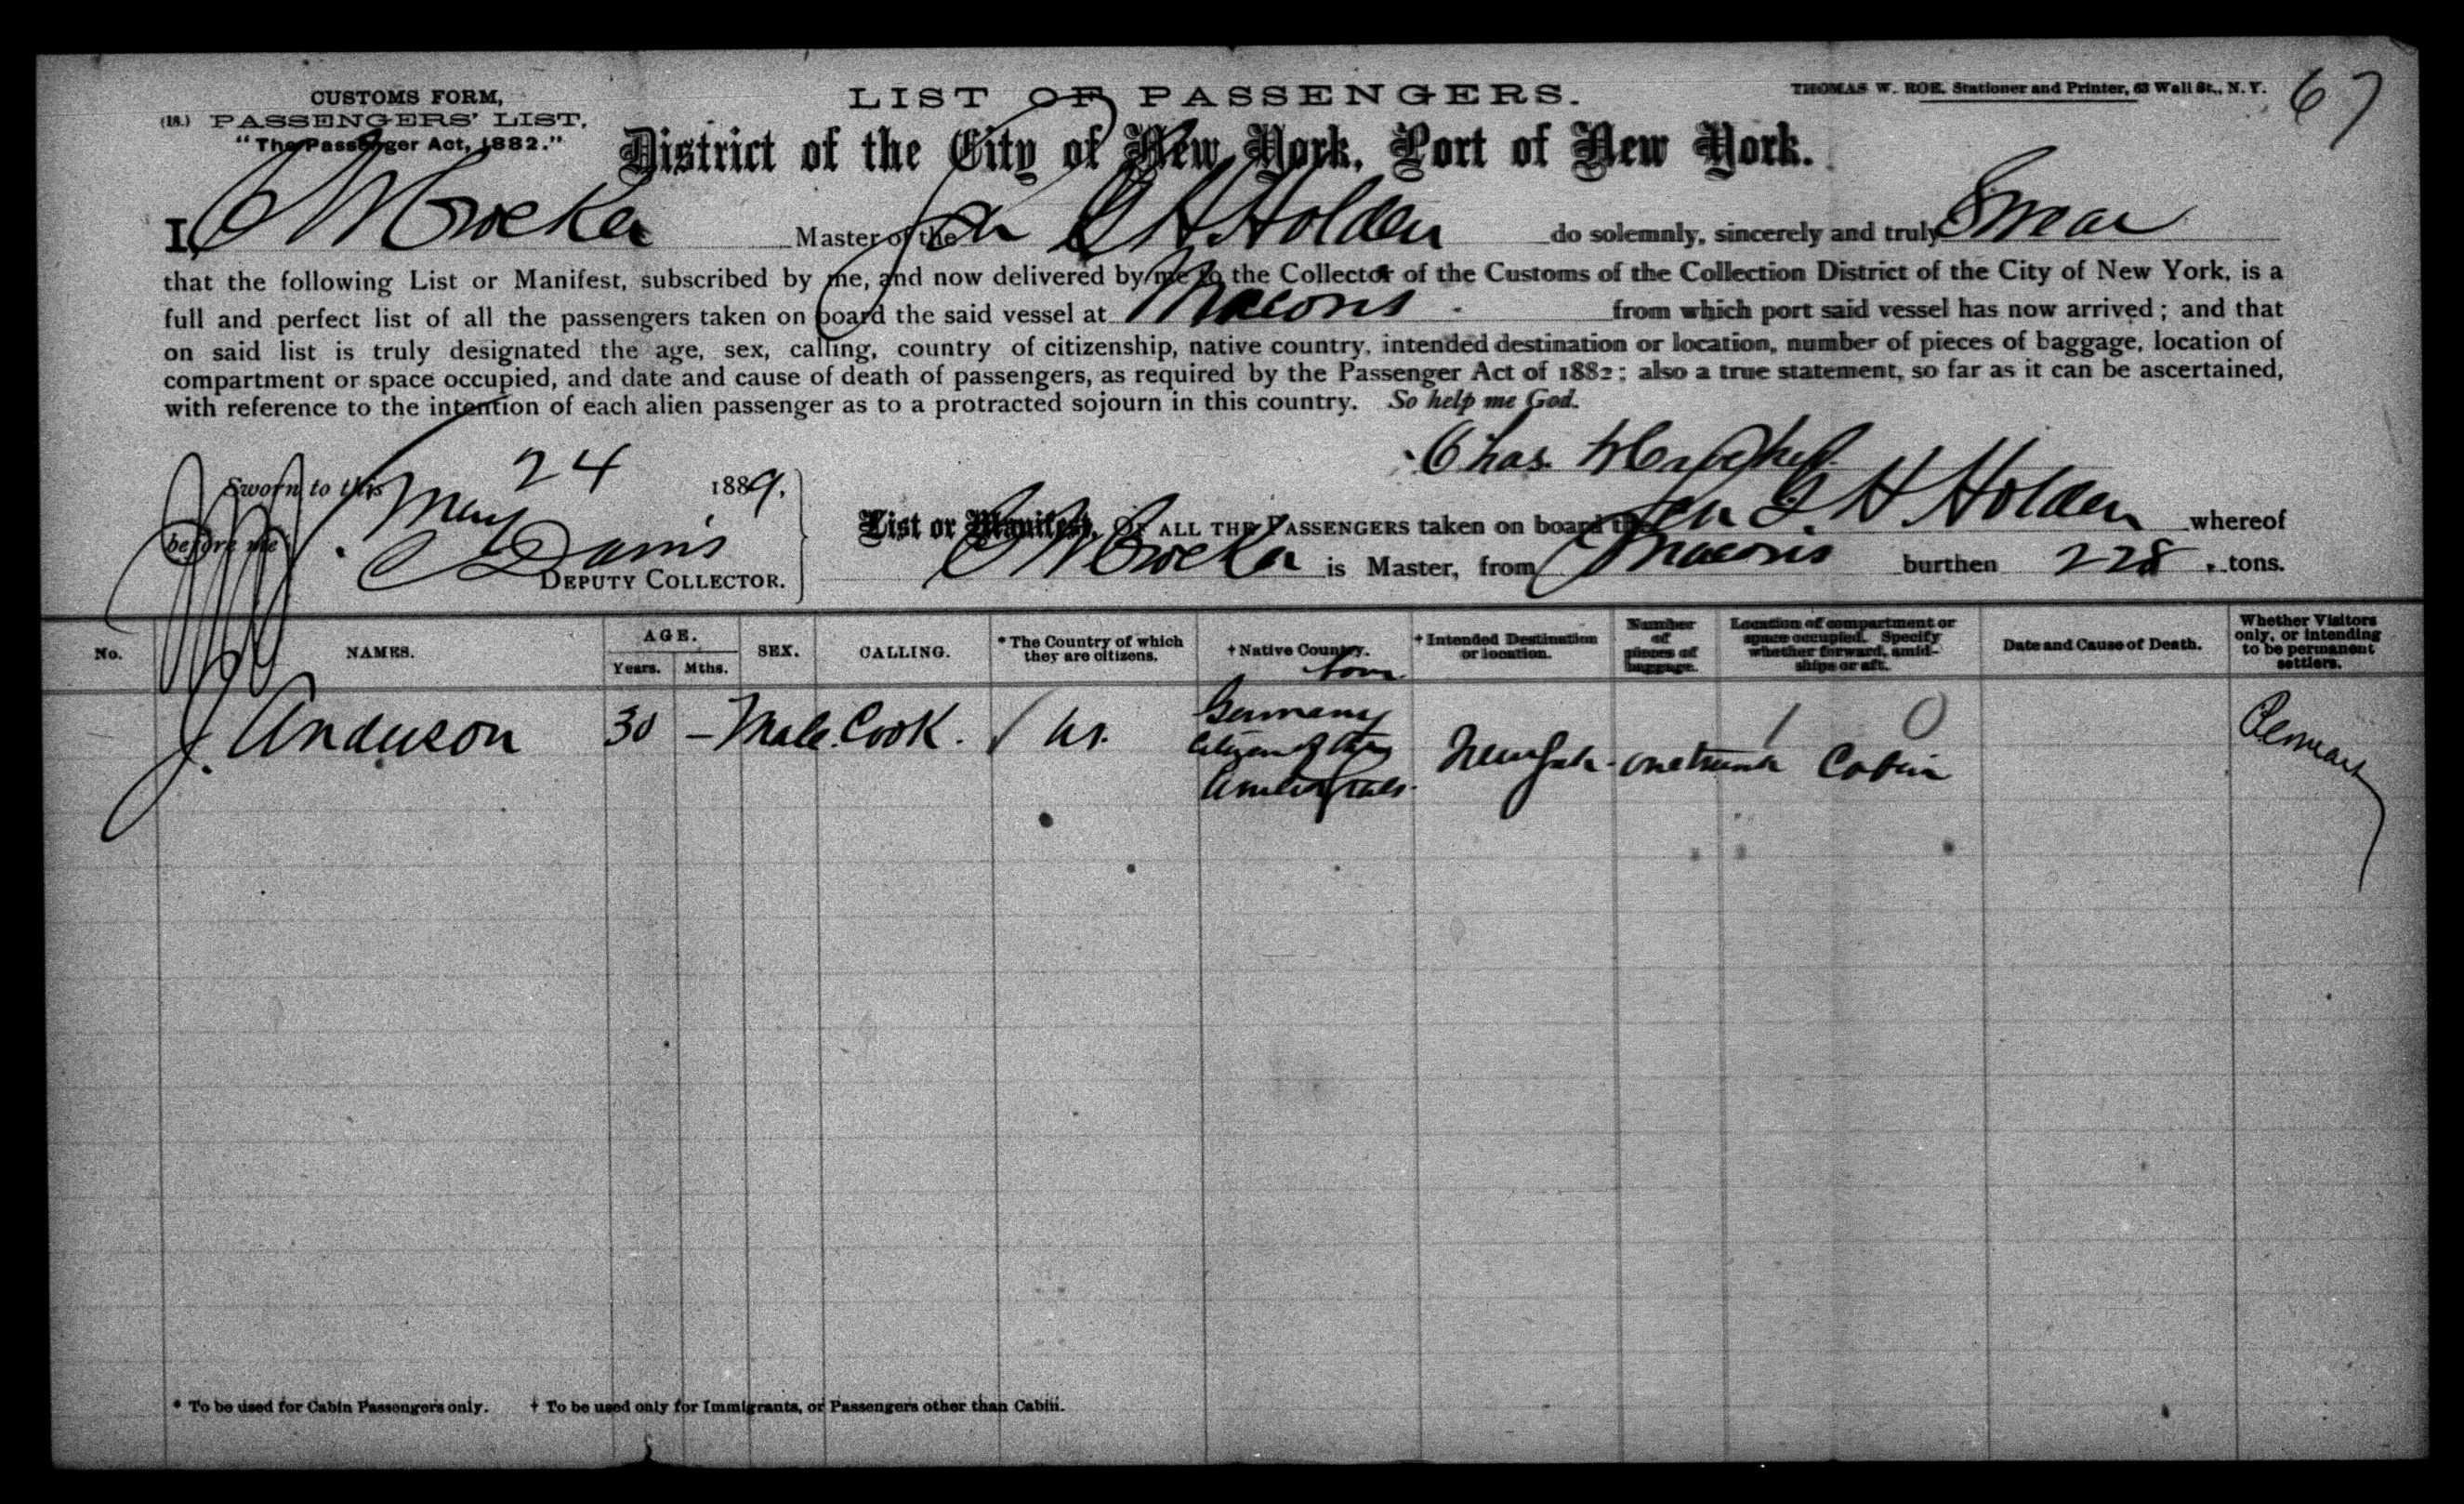 CUSTOMS FORM,
(18.) PASSENGERS' LIST,
"The Passenger Act, 1882."
LIST OF PASSENGERS.
THOMAS W. ROE, Stationer and Printer, 63 Wall St., N. Y.
67
District of the City of New York, Port of New York.
I, Crocker Master of the G H Holden do solemnly, sincerely and truly Swear
that the following List or Manifest, subscribed by me, and now delivered by me to the Collector of the Customs of the Collection District of the City of New York, is a
full and perfect list of all the passengers taken on board the said vessel at Macoris from which port said vessel has now arrived; and that
on said list is truly designated the age, sex, calling, country of citizenship, native country, intended destination or location, number of pieces of baggage, location of
compartment or space occupied, and date and cause of death of passengers, as required by the Passenger Act of 1882; also a true statement, so far as it can be ascertained,
with reference to the intention of each alien passenger as to a protracted sojourn in this country. So help me God.
Chas.
Sworn to this May 24 1889.
before me C Davis
DEPUTY COLLECTOR.
List or Manifest, OF ALL THE PASSENGERS taken on board the G. H Holden whereof
Crocker is Master, from Macoris burthen 228 tons.
No.
NAMES.
AGE.
Years. Mths.
SEX.
CALLING.
* The Country of which they are citizens.
† Native Country.
† Intended Destination or location.
Number of pieces of baggage.
Location of compartment or space occupied. Specify whether forward, amidships or aft.
Date and Cause of Death.
Whether Visitors only, or intending to be permanent settlers.
J. Anderson 30 — Male. Cook. us. born Germany Citizen of the New York one trunk Cabin
1 0
* To be used for Cabin Passengers only. † To be used only for Immigrants, or Passengers other than Cabin.